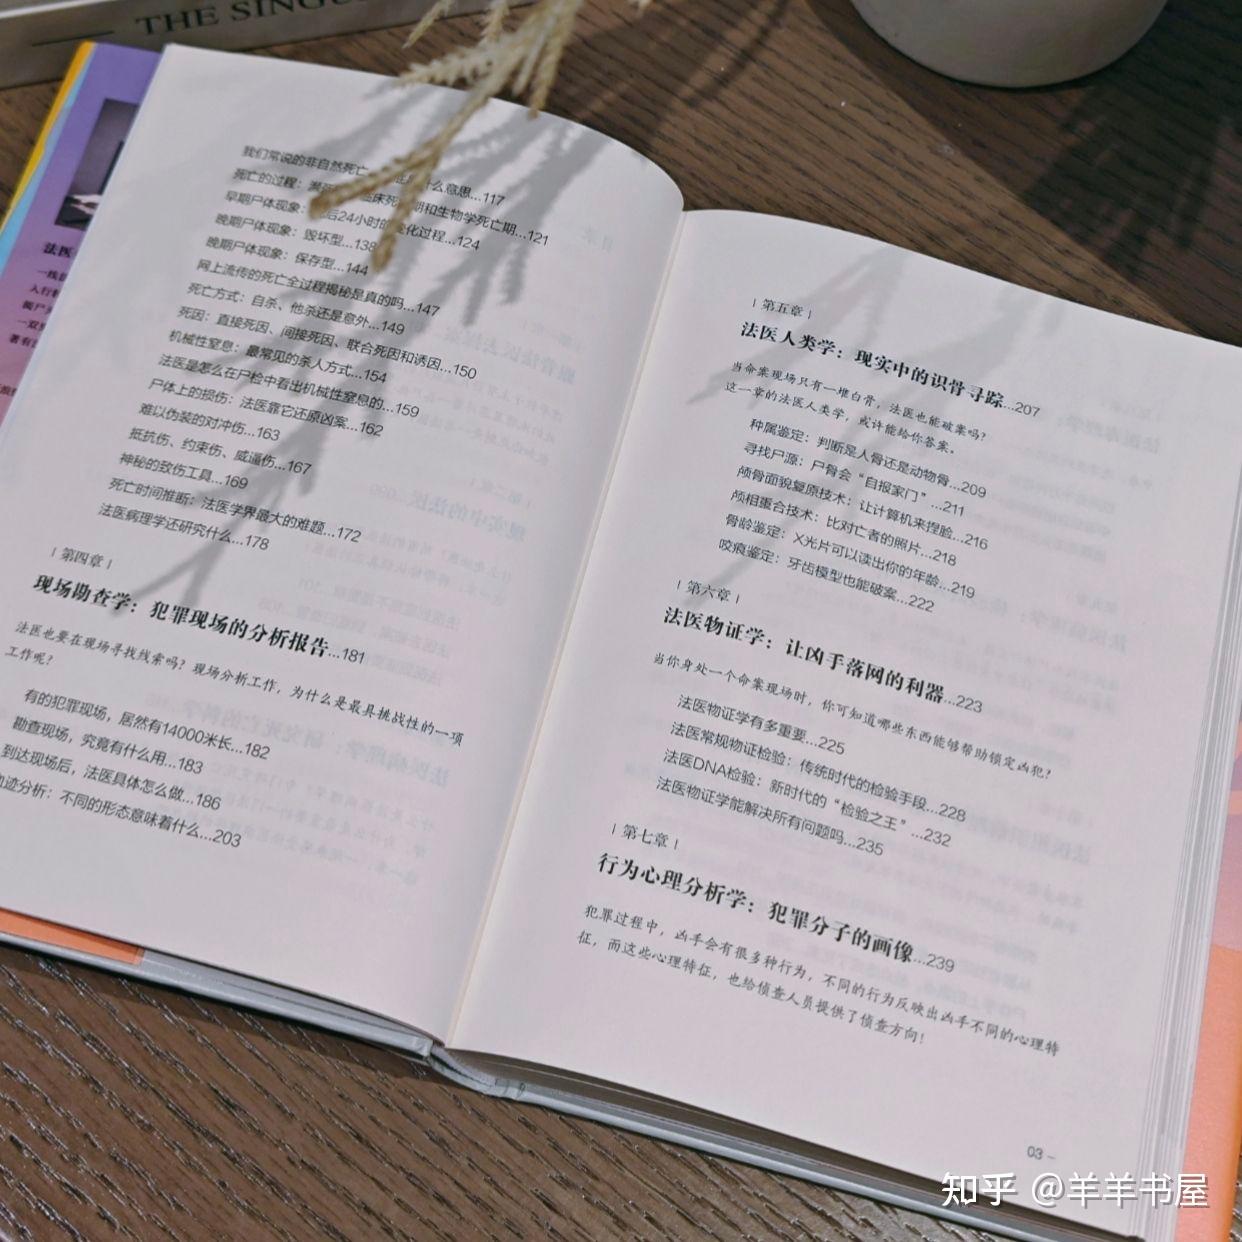 THE SINGU
法医
一线
入行
著有
我们常说的非自然死亡 什么意思…117
死亡的过程： 临床死 期和生物学死亡期…121
早期尸体现象： 后24小时的 化过程…124
晚期尸体现象：毁坏型…138
晚期尸体现象：保存型…144
网上流传的死亡全过程揭秘是真的吗…147
死亡方式：自杀、他杀还是意外…149
死因：直接死因、间接死因、联合死因和诱因…150
机械性窒息：最常见的杀人方式…154
法医是怎么在尸检中看出机械性窒息的…159
尸体上的损伤：法医靠它还原凶案…162
难以伪装的对冲伤…163
抵抗伤、约束伤、威逼伤…167
神秘的致伤工具…169
死亡时间推断：法医学界最大的难题…172
法医病理学还研究什么…178
| 第四章 |
现场勘查学：犯罪现场的分析报告…181
法医也要在现场寻找线索吗？现场分析工作，为什么是最具挑战性的一项
工作呢？
有的犯罪现场，居然有14000米长…182
勘查现场，究竟有什么用…183
到达现场后，法医具体怎么做…186
迹分析：不同的形态意味着什么…203
| 第五章 |
法医人类学：现实中的识骨寻踪…207
当命案现场只有一堆白骨，法医也能破案吗？
这一章的法医人类学，或许能给你答案。
种属鉴定：判断是人骨还是动物骨…209
寻找尸源：尸骨会“自报家门”…211
颅骨面貌复原技术：让计算机来捏脸…216
颅相重合技术：比对亡者的照片…218
骨龄鉴定：X光片可以读出你的年龄…219
咬痕鉴定：牙齿模型也能破案…222
| 第六章 |
法医物证学：让凶手落网的利器…223
当你身处一个命案现场时，你可知道哪些东西能够帮助锁定凶犯？
法医物证学有多重要…225
法医常规物证检验：传统时代的检验手段…228
法医DNA检验：新时代的“检验之王”…232
法医物证学能解决所有问题吗…235
| 第七章 |
行为心理分析学：犯罪分子的画像…239
犯罪过程中，凶手会有很多种行为，不同的行为反映出凶手不同的心理特
征，而这些心理特征，也给侦查人员提供了侦查方向！
03 –
知乎 @羊羊书屋